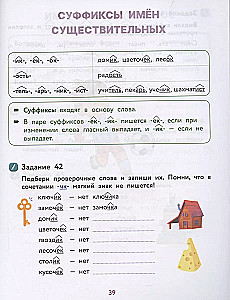 СУФФИКСЫ ИМЁН
СУЩЕСТВИТЕЛЬНЫХ
-ик-, -ек-, -ок- домик, цветочек, лесок
-ость- радость
-тель-, -арь-, -ник-, -ист- учитель, пекарь, ученик, шахматист
• Суффиксы входят в основу слова.
• В паре суффиксов -ек-, -ик- пишется -ек-, если при
изменении слова гласный выпадает, и -ик- — если не
выпадает.
Задание 42
Подбери проверочные слова и запиши их. Помни, что в
сочетании -чк- мягкий знак не пишется!
ключик — нет ключика
замочек — нет замочка
домик — нет
цветочек — нет
гвоздик — нет
лесочек — нет
столик — нет
кусочек — нет
39